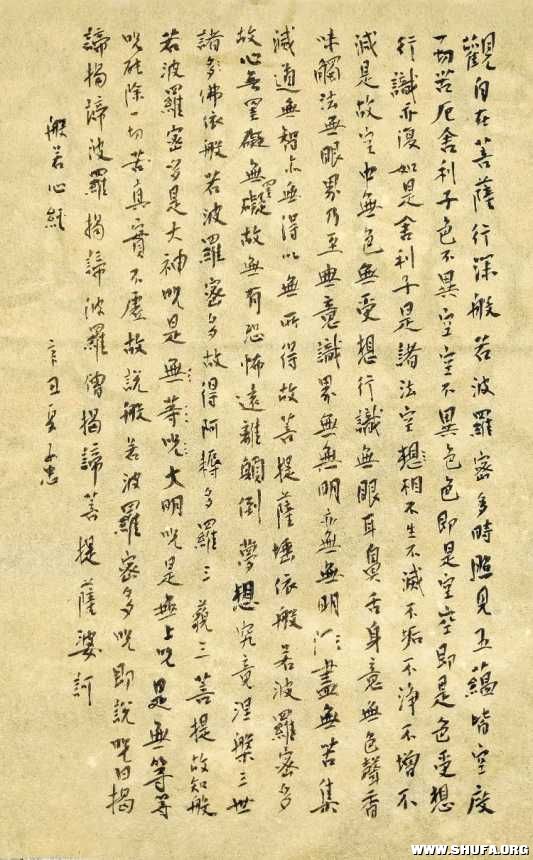 觀自在菩薩行深般若波羅密多時照見五蘊皆空度
一切苦厄舍利子色不異空空不異色色即是空空即是色受想
行識亦復如是舍利子是諸法空想相不生不滅不垢不淨不增不
減是故空中無色無受想行識無眼耳鼻舌身意無色聲香
味觸法無眼界乃至無意識界無無明亦無無明盡無苦集
滅道無智亦無得以無所得故菩提薩埵依般若波羅密多
故心無罣礙無罣礙故無有恐怖遠離顛倒夢想究竟涅槃三世
諸佛依般若波羅密多故得阿耨多羅三藐三菩提故知般
若波羅密多是大神咒是無等咒大明咒是無上咒是無等等
咒能除一切苦真實不虛故說般若波羅密多咒即說咒曰揭
諦揭諦波羅揭諦波羅僧揭諦菩提薩婆訶
般若心經
辛丑夏
WWW.SHUFA.ORG